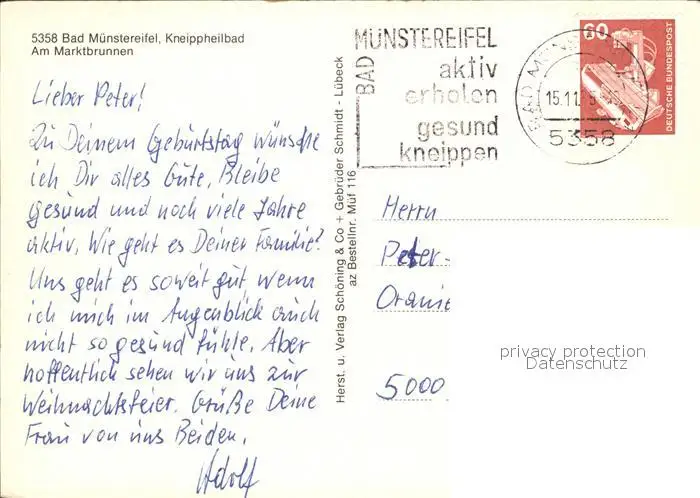 5358 Bad Münstereifel, Kneippheilbad
Am Marktbrunnen
Lieber Peter!
Zu Deinem Geburtstag wünsche
ich Dir alles Gute, Bleibe
gesund und noch viele Jahre
aktiv. Wie geht es Deiner Familie?
Uns geht es soweit gut, wenn
ich mich im Augenblick auch
nicht so gesund fühle. Aber
hoffentlich sehen wir uns zur
Weihnachtsfeier. Grüße Deine
Frau von uns Beiden.
Adolf
Herst. u. Verlag Schöning & Co + Gebrüder Schmidt - Lübeck
az Bestellnr. Müf 116
BAD
MÜNSTEREIFEL
aktiv
erholen
gesund
kneippen
BAD MÜNS
15.11.
5358
60
DEUTSCHE BUNDESPOST
Herrn
Peter
Oranie
5000
privacy protection
Datenschutz